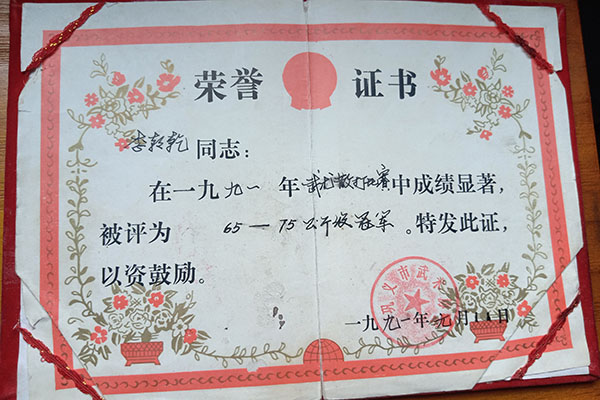 荣誉 证书
李 乾同志:
在一九九一年武术散打比赛中成绩显著,
被评为 65—75公斤级冠军。特发此证,
以资鼓励。
义市武术
一九九一年 月11日